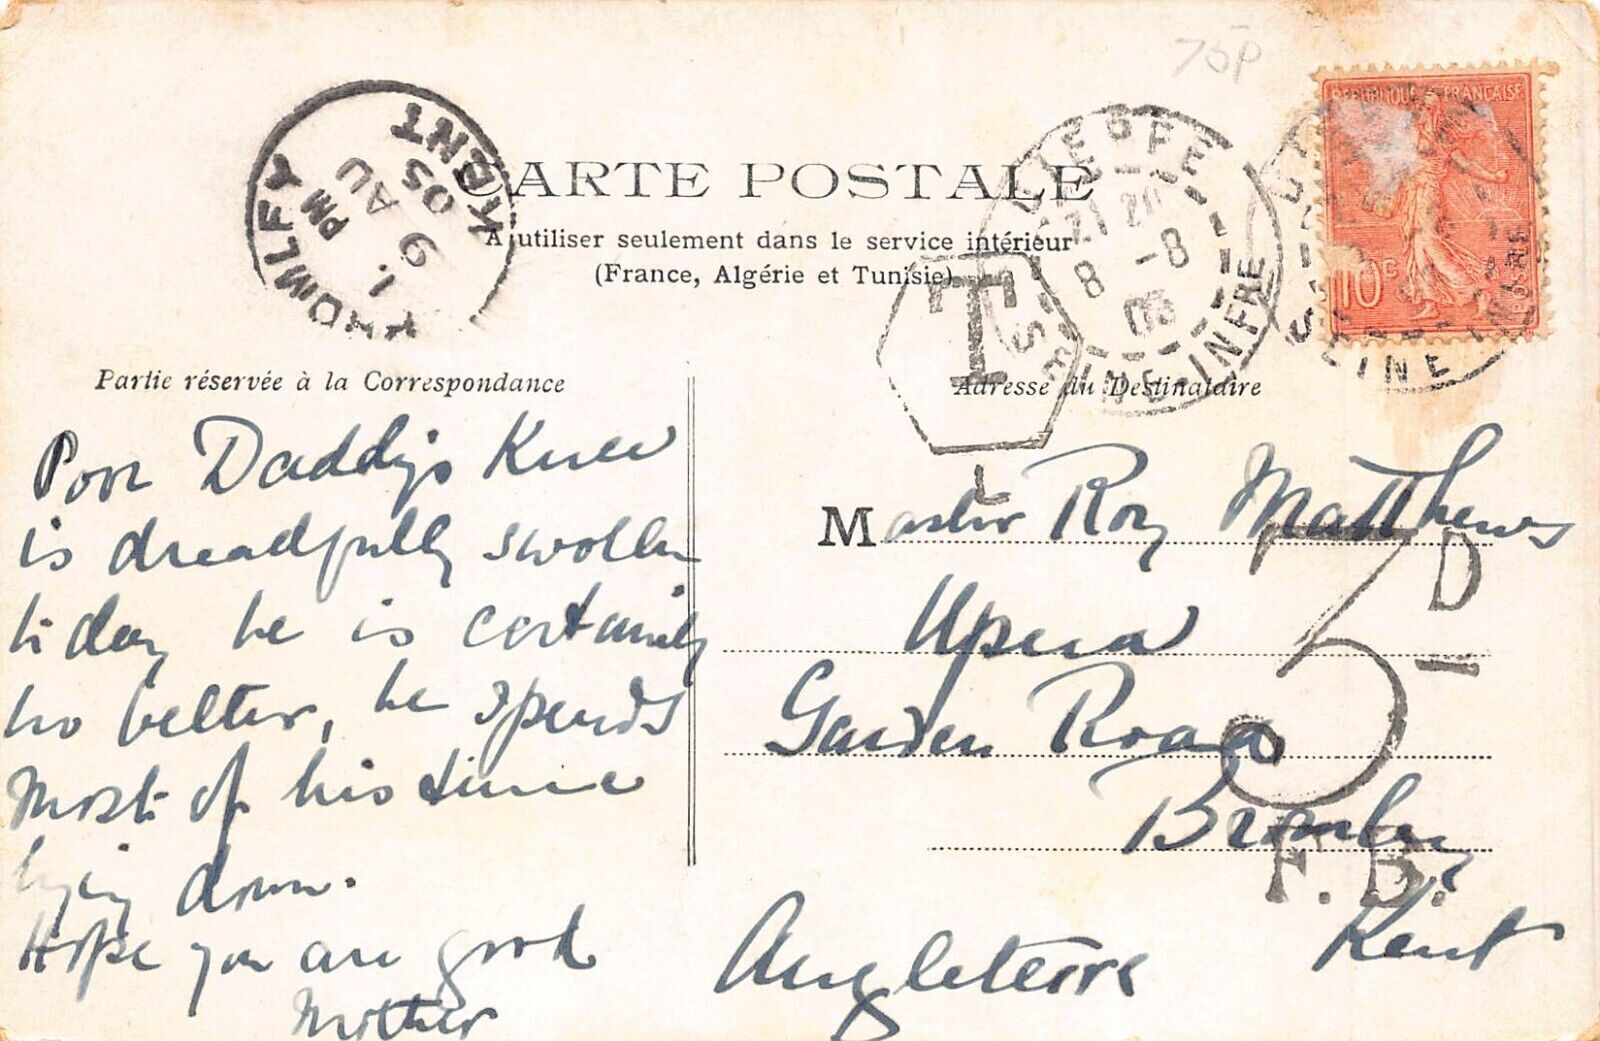 75P
RÉPUBLIQUE FRANÇAISE
10 c
BROMLEY KENT
1. PM
9 AU
05
DIEPPE
21 20
8 -8
05
SEINE-INFRE
CARTE POSTALE
A utiliser seulement dans le service intérieur
(France, Algérie et Tunisie)
T
L
Partie réservée à la Correspondance
Poor Daddy's Knee
is dreadfully swollen
to day he is certainly
no better, he spends
Most of his time
lying down.
Hope you are good
Mother
Adresse du Destinataire
Master Roy Matthews
Garden Road
Bromley
Kent
Angleterre
D
F.B.